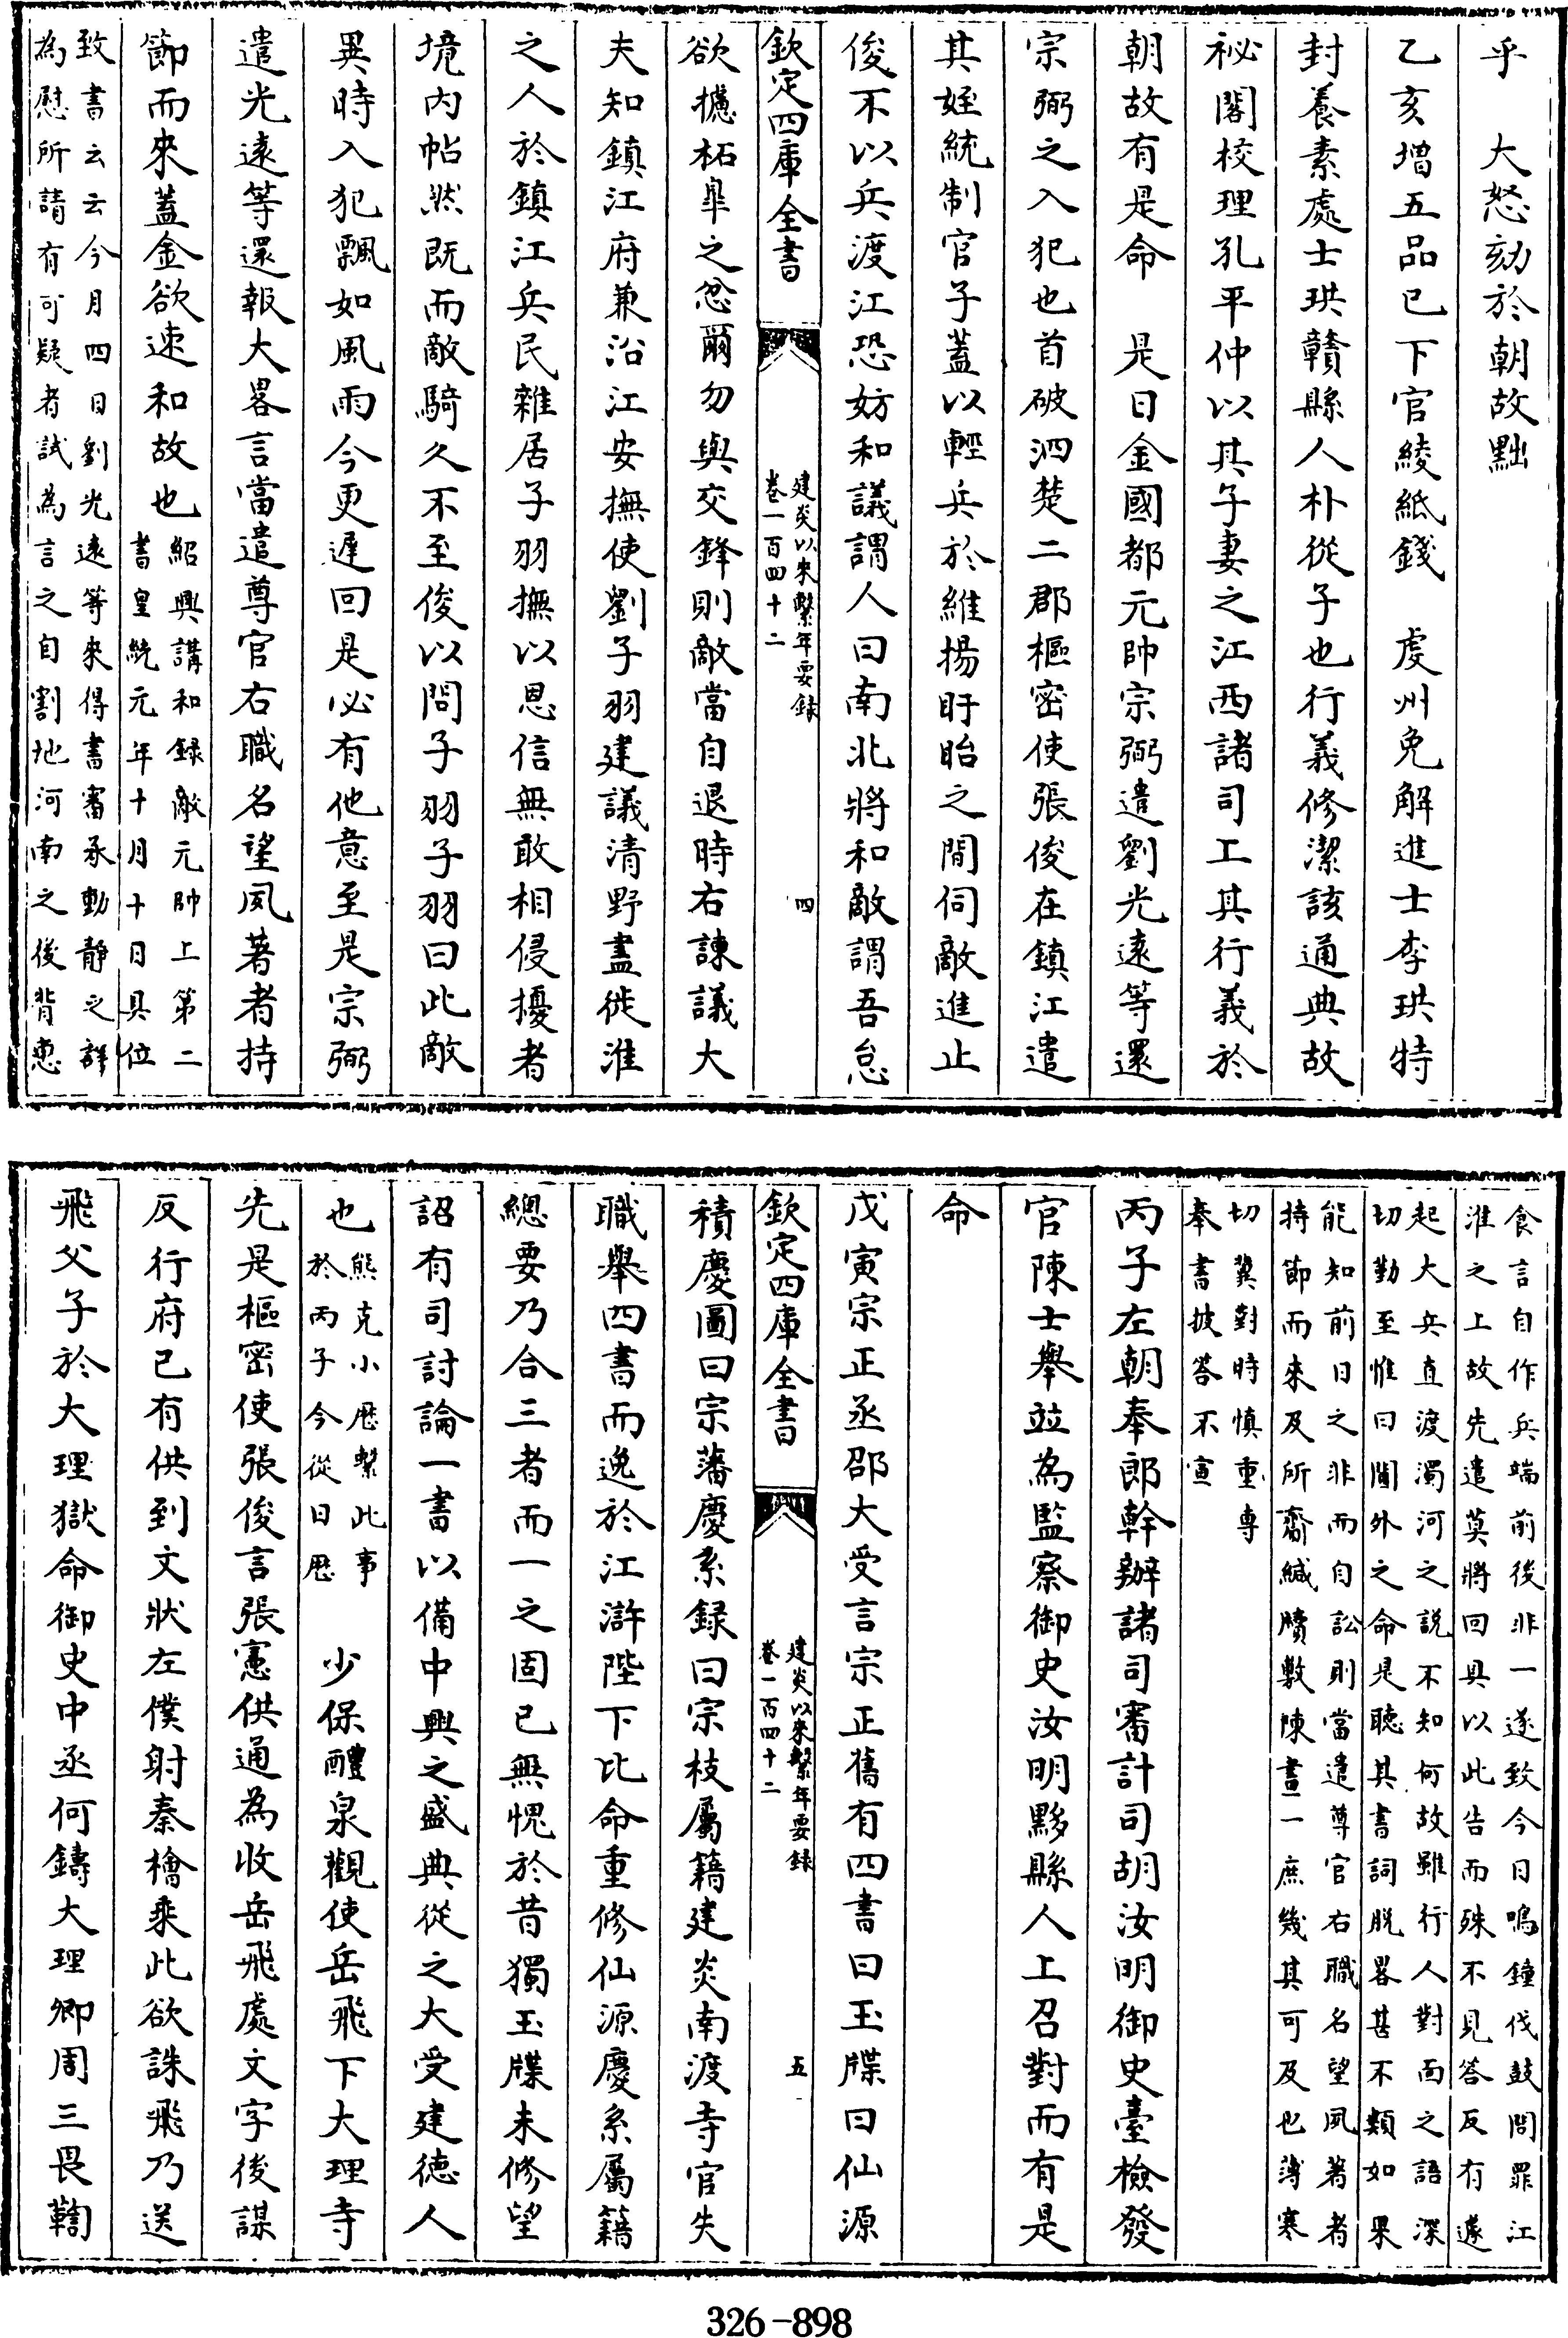 乎　大怒劾於朝故黜
乙亥増五品已下官綾紙錢　虔州免解進士李珙特
封養素處士珙贛縣人朴從子也行義修潔該通典故
祕閣校理孔平仲以其子妻之江西諸司上其行義於
朝故有是命　是日金國都元帥宗弼遣劉光遠等還
宗弼之入犯也首破泗楚二郡樞密使張俊在鎮江遣
其姪統制官子蓋以輕兵於維揚盱眙之間伺敵進止
俊不以兵渡江恐妨和議謂人曰南北將和敵謂吾怠
欽定四庫全書
建炎以來繫年要録
卷一百四十二
四
欲攄柘臯之忿爾勿與交鋒則敵當自退時右諫議大
夫知鎮江府兼沿江安撫使劉子羽建議清野盡徙淮
之人於鎮江兵民雜居子羽撫以恩信無敢相侵擾者
境内帖然既而敵騎久不至俊以問子羽子羽曰此敵
異時入犯飄如風雨今更遲回是必有他意至是宗弼
遣光遠等還報大畧言當遣尊官右職名望夙著者持
節而來蓋金欲速和故也
紹興講和録敵元帥上第二
書皇統元年十月十日具位
致書云云今月四日劉光遠等來得書審承動靜之詳
為慰所請有可疑者試為言之自割地河南之後背惠
食言自作兵端前後非一遂致今日鳴鐘伐鼓問罪江
淮之上故先遣莫將回具以此告而殊不見答反有遽
起大兵直渡濁河之説不知何故雖行人對面之語深
切勤至惟曰閫外之命是聽其書詞脱畧甚不類如果
能知前日之非而自訟則當遣尊官右職名望夙著者
持節而來及所齎緘牘敷陳晝一庶幾其可及也薄寒
切冀對時慎重專
奉書披答不宣
丙子左朝奉郎幹辦諸司審計司胡汝明御史臺檢發
官陳士舉並為監察御史汝明黟縣人上召對而有是
命
戊寅宗正丞邵大受言宗正舊有四書曰玉牒曰仙源
欽定四庫全書
建炎以來繫年要録
卷一百四十二
五
積慶圖曰宗藩慶系録曰宗枝屬籍建炎南渡寺官失
職舉四書而逸於江滸陛下比命重修仙源慶系屬籍
總要乃合三者而一之固已無愧於昔獨玉牒未修望
詔有司討論一書以備中興之盛典從之大受建德人
也
熊克小厯繫此事
於丙子今從日厯
少保醴泉觀使岳飛下大理寺
先是樞密使張俊言張憲供通為收岳飛處文字後謀
反行府已有供到文狀左僕射秦檜乘此欲誅飛乃送
飛父子於大理獄命御史中丞何鑄大理卿周三畏鞫
326-898